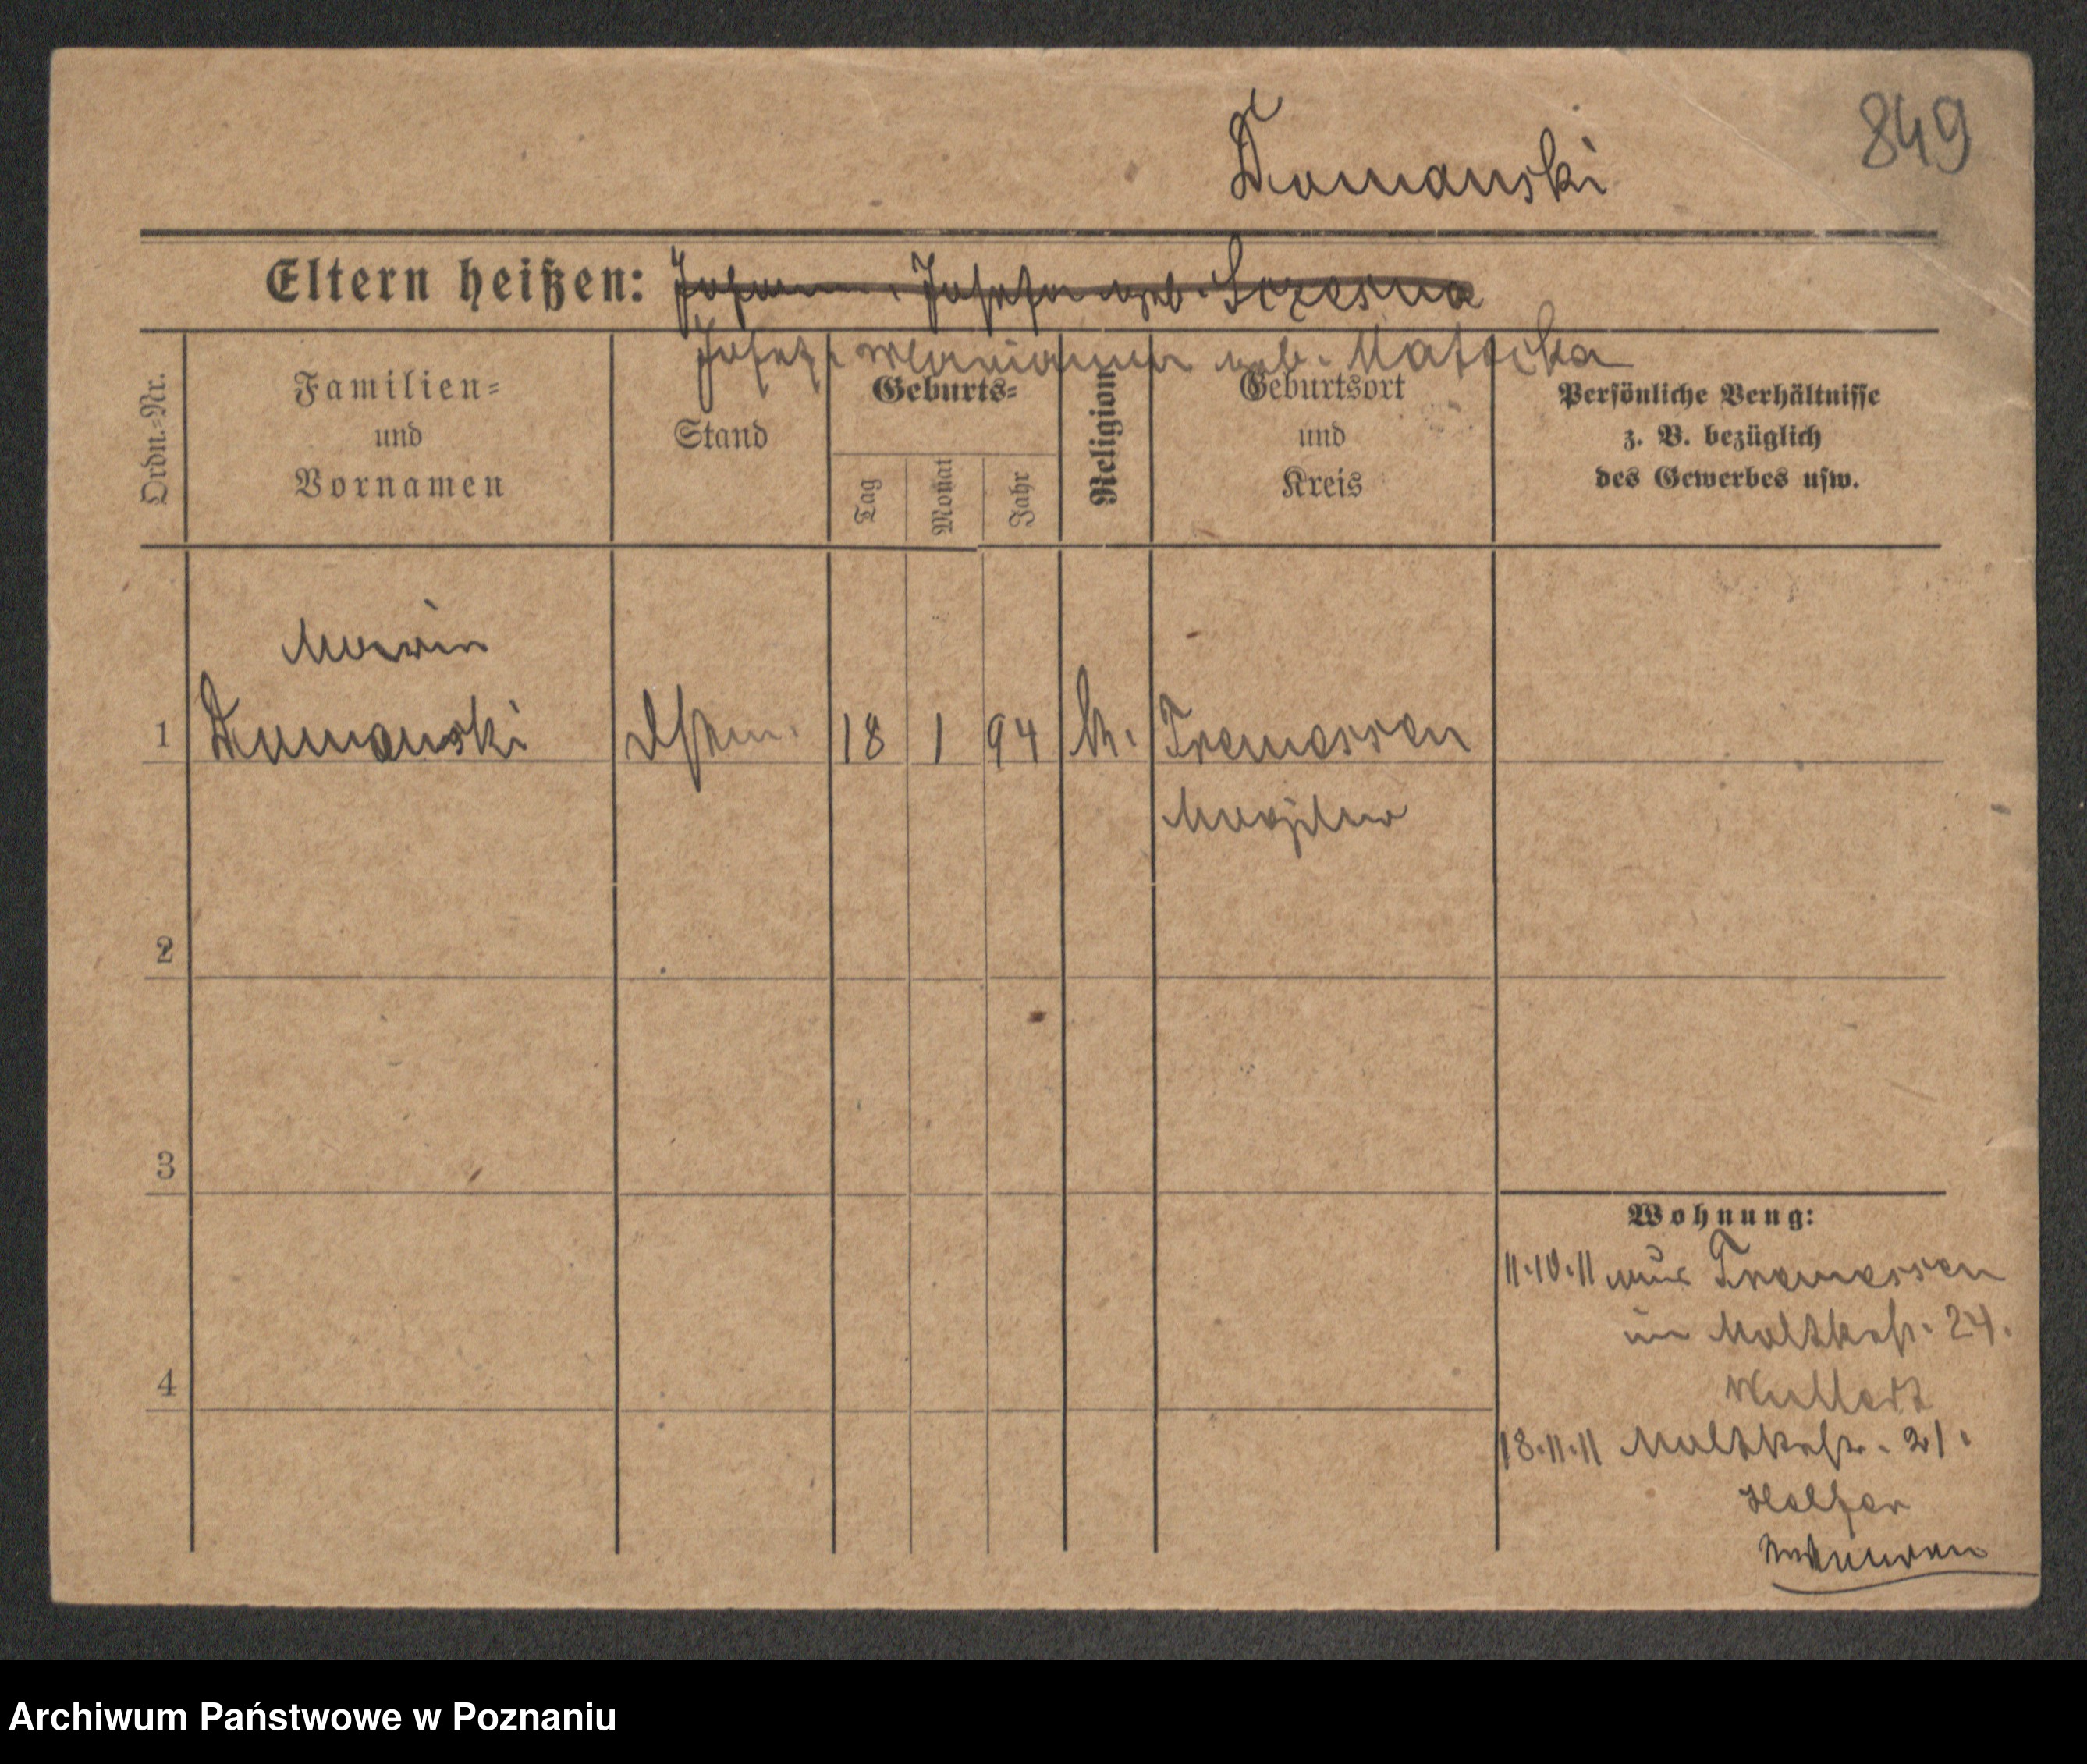 849
Domanski
Eltern heißen: Johann, Josefa geb. Szczesna
Josef, Marianna geb. Matocka
Ordn.-Nr.
Familien-
und
Vornamen
Stand
Geburts-
Tag
Monat
Jahr
Religion
Geburtsort
und
Kreis
Persönliche Verhältnisse
z. B. bezüglich
des Gewerbes usw.
Maria
1 Domanski 18 1 94 k. Tremessen
Mogilno
2
3
4
Wohnung:
11.10.11 aus Tremessen
in Moltkestr. 24.
18.11.11 Moltkestr. 21.
Archiwum Państwowe w Poznaniu